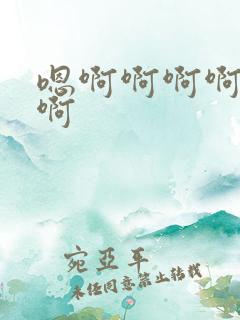 嗯啊啊啊啊
啊
宛亞平
未经同意禁止转载